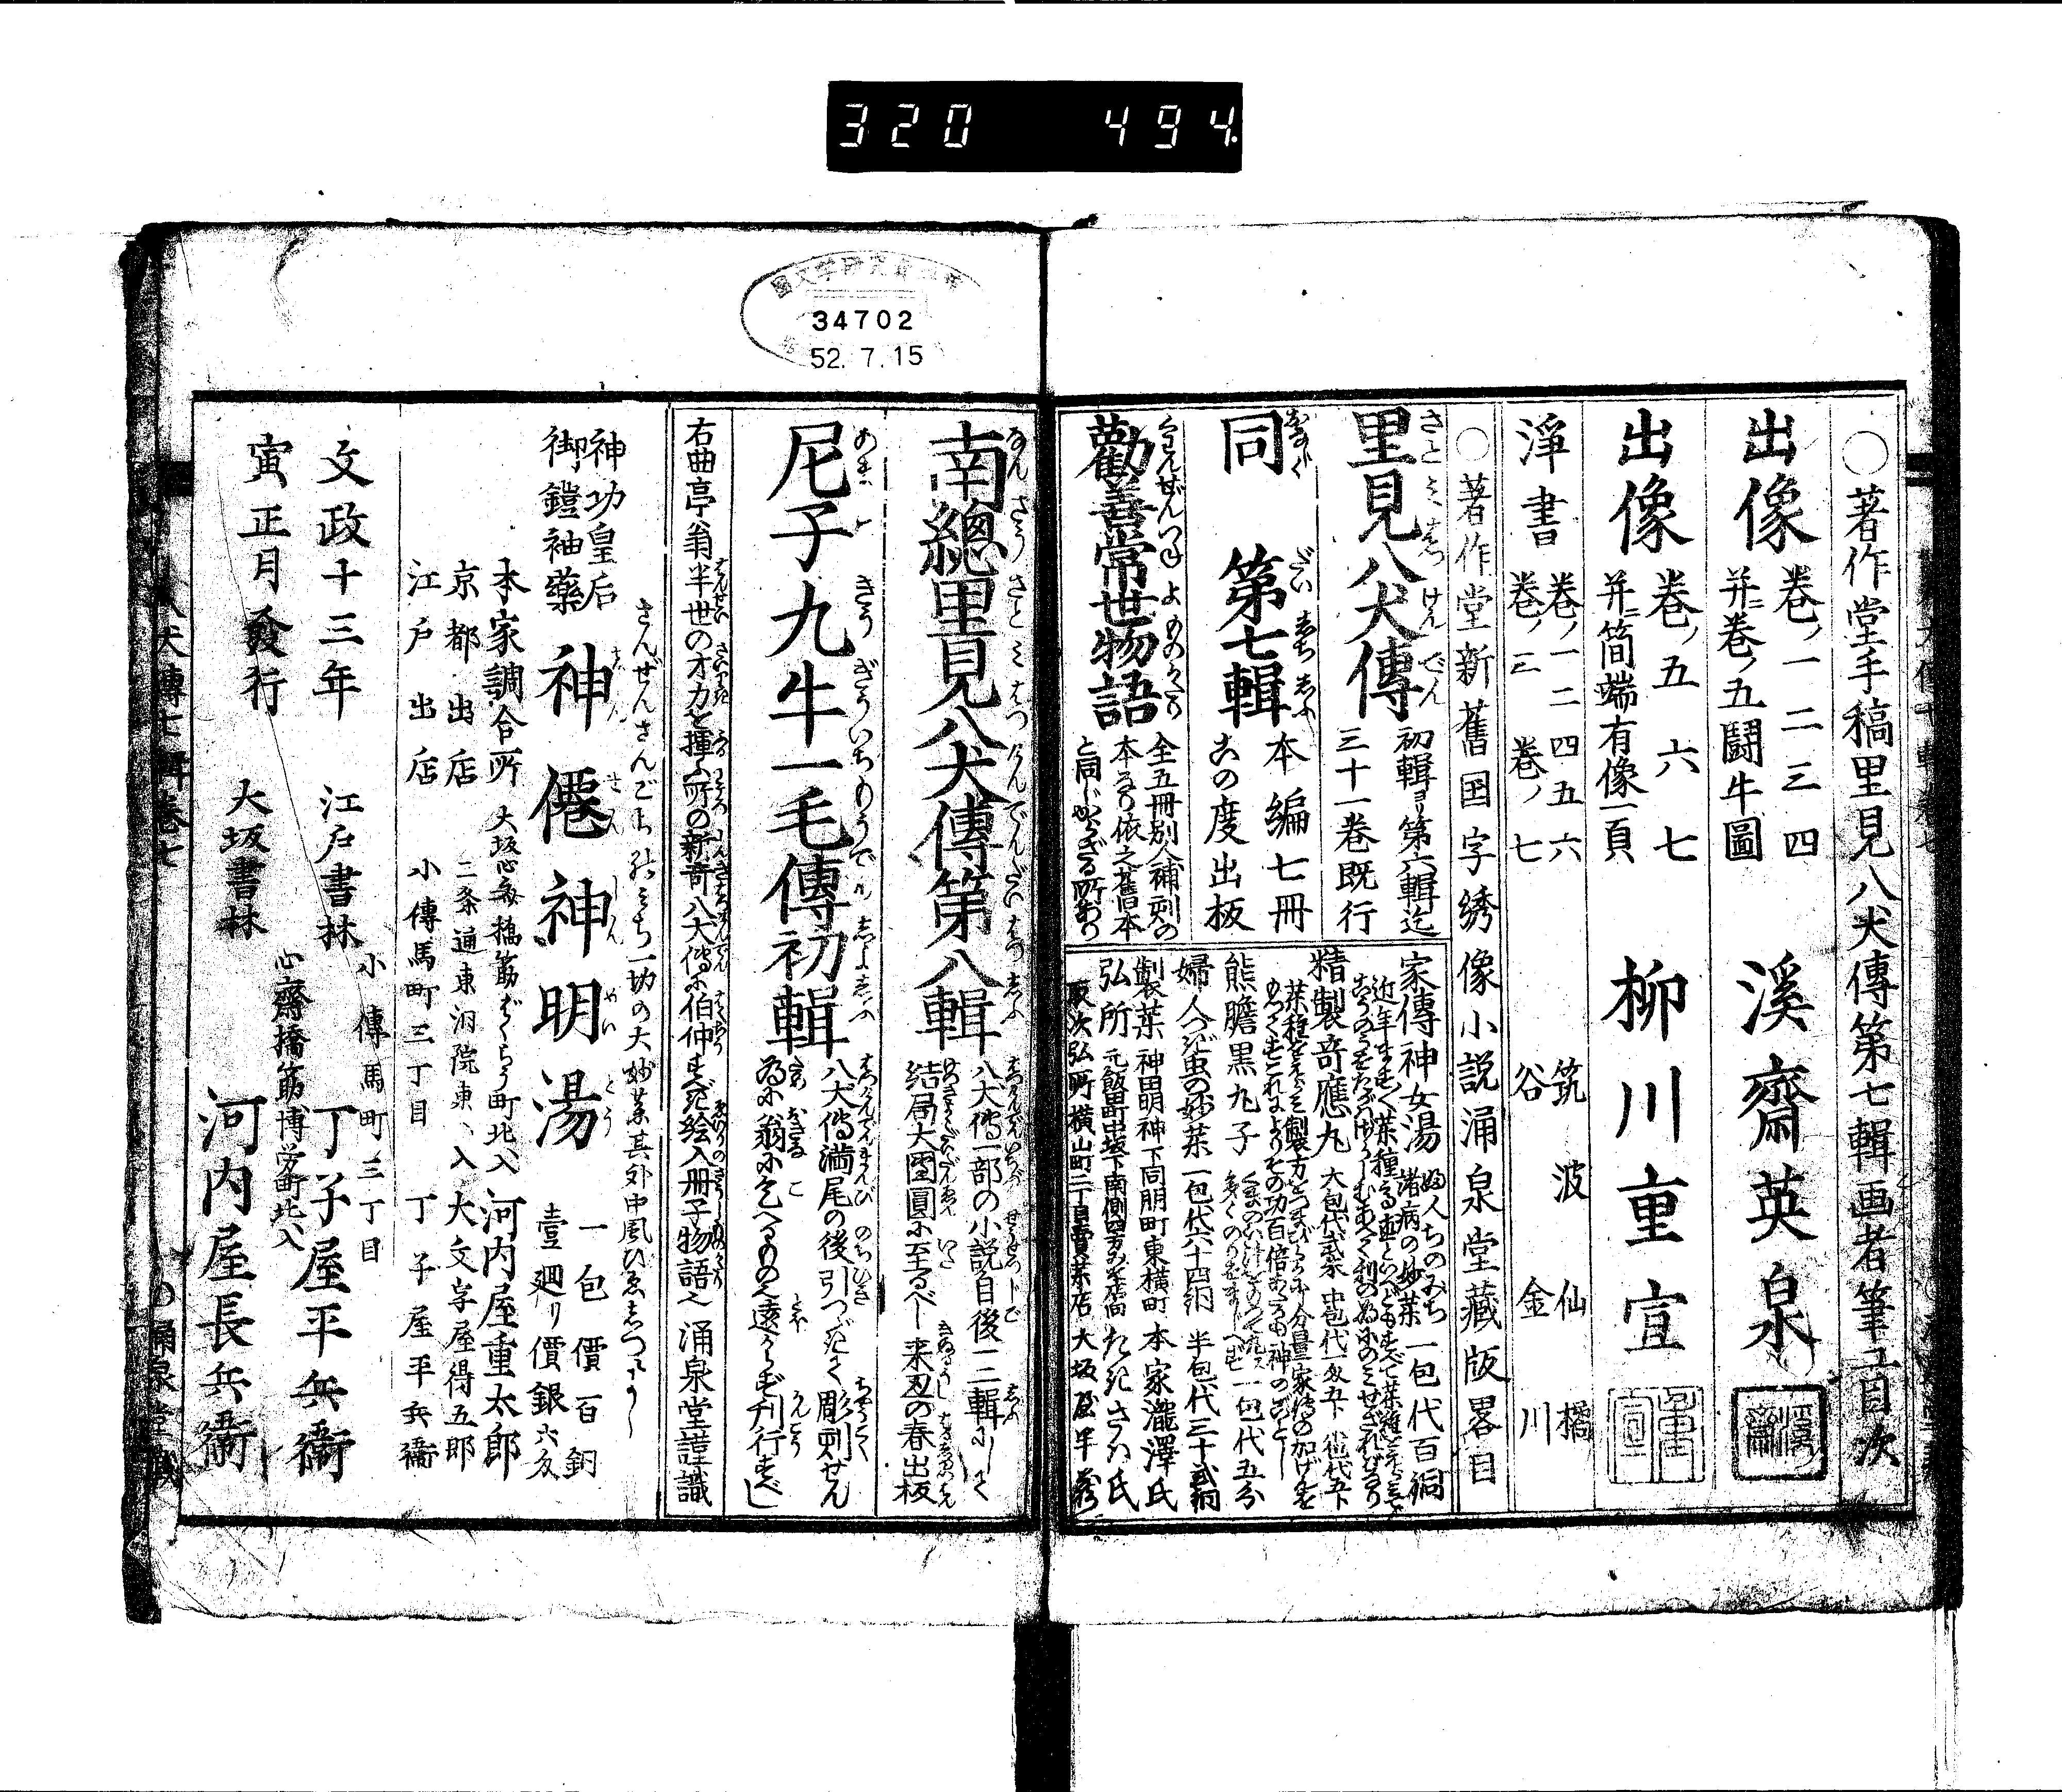 320 494
國文学研究資料館
34702
52.7.15
○著作堂手稿里見八犬傳第七輯画者筆工目次
出像 巻ノ一二三四 并ニ巻ノ五闘牛圖 溪齋英泉
出像 巻ノ五六七 并ニ簡端有像一頁 柳川重宣
淨書 巻ノ一二四五六 筑波仙橘
巻ノ三 巻ノ七 谷金川
○著作堂新舊国字綉像小説涌泉堂藏版畧目
里見八犬傳 初輯ヨリ第六輯迄三十一巻既行
同 第七輯 本編七冊 この度出板
勸善常世物語 全五冊別人補刻の本あり依之舊本と同じからざる所あり
家傳神女湯 婦人ちのみち諸病の妙薬 一包代百銅
精製奇應丸 大包代弐朱 中包代一匁五分 小包代五分
熊膽黒丸子 一包代五分
婦人つぎ虫の妙薬 一包代六十四銅 半包代三十弐銅
製薬 神田明神下同朋町東横町 本家瀧澤氏
弘所 元飯田町中坂下南側四方みそ店向 たきさハ氏
取次弘所横山町二丁目賣薬店 大坂屋半蔵
南總里見八犬傳第八輯 八犬傳一部の小説自後二輯にして結局大團圓に至るべし来卯の春出板
尼子九牛一毛傳初輯 八犬傳満尾の後引つゞきて彫刻せん為に翁に乞へるもの也遠からず刊行すべし
右曲亭翁半世の才力を揮ふ所の新奇八犬傳に伯仲すべき絵入冊子物語也 涌泉堂謹識
さんぜんさんごちのミち一切の大妙薬其外中風ひゑしつによし
神功皇后
御鎧袖藥 神僊神明湯 一包價百銅
壹廻リ價銀六匁
本家調合所 大坂心斎橋筋ばくろう町北ヘ入 河内屋重太郎
京都出店 二条通東洞院東ヘ入 大文字屋得五郎
江戸出店 小傳馬町三丁目 丁子屋平兵衞
文政十三年 江戸書林 小傳馬町三丁目 丁子屋平兵衞
寅正月發行 大坂書林 心齋橋筋博労町北ヘ入 河内屋長兵衞
八犬傳七輯巻七
涌泉堂藏